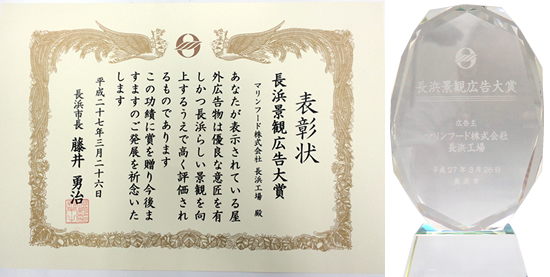 表彰状
長浜景観広告大賞
マリンフード株式会社 長浜工場 殿
あなたが表示されている屋
外広告物は優良な意匠を有
しかつ長浜らしい景観を向
上するうえで高く評価され
るものであります
この功績に賞を贈り今後ま
すますのご発展を祈念いた
します
平成二十七年三月二十六日
長浜市長 藤井 勇治
長浜景観広告大賞
広告主
マリンフード株式会社
長浜工場
平成27年3月26日